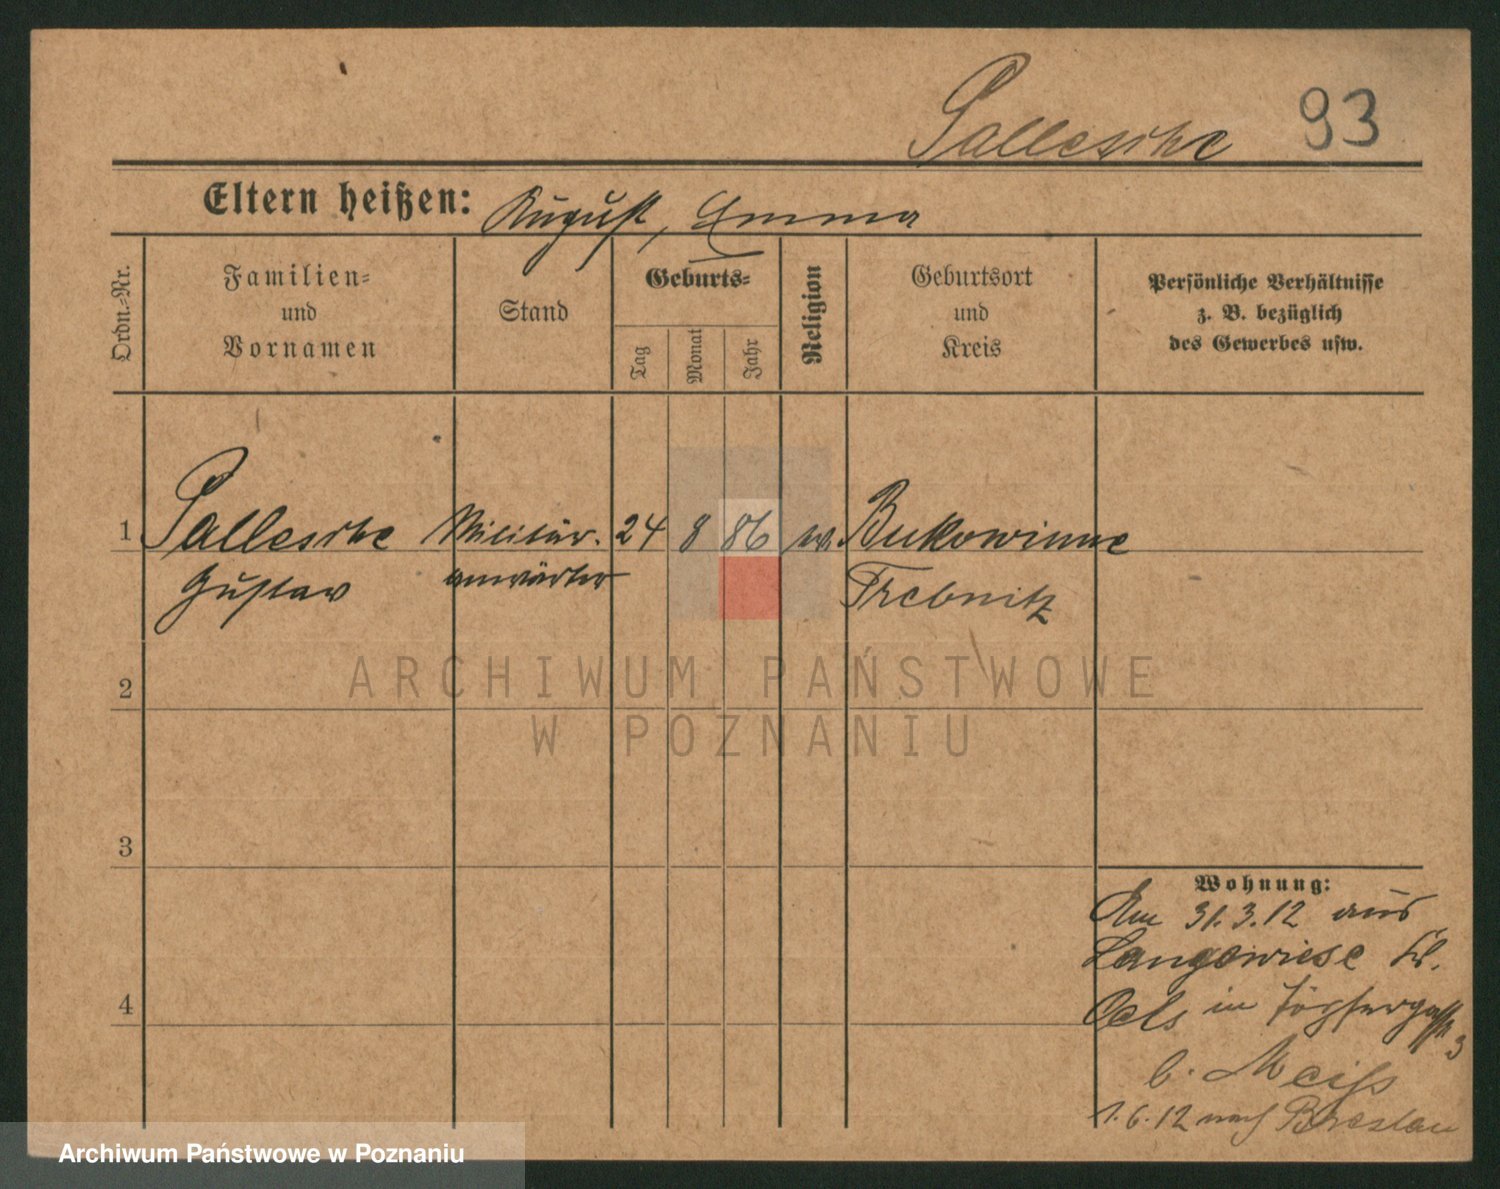 Pallesche 93
Eltern heißen: August, Emma
Ordn.-Nr.
Familien-
und
Vornamen
Stand
Geburts-
Tag
Monat
Jahr
Religion
Geburtsort
und
Kreis
Persönliche Verhältnisse
z. B. bezüglich
des Gewerbes usw.
1 Pallesche Militär. 24 8 86 ev. Bukowinne
Gustav anwärter Trebnitz
ARCHIWUM PAŃSTWOWE
W POZNANIU
2
3
4
Wohnung:
Am 31.3.12 aus
Langewiese Kr.
Oels in Töpfergasse 3
b. Meiss
1.6.12 nach Breslau
Archiwum Państwowe w Poznaniu